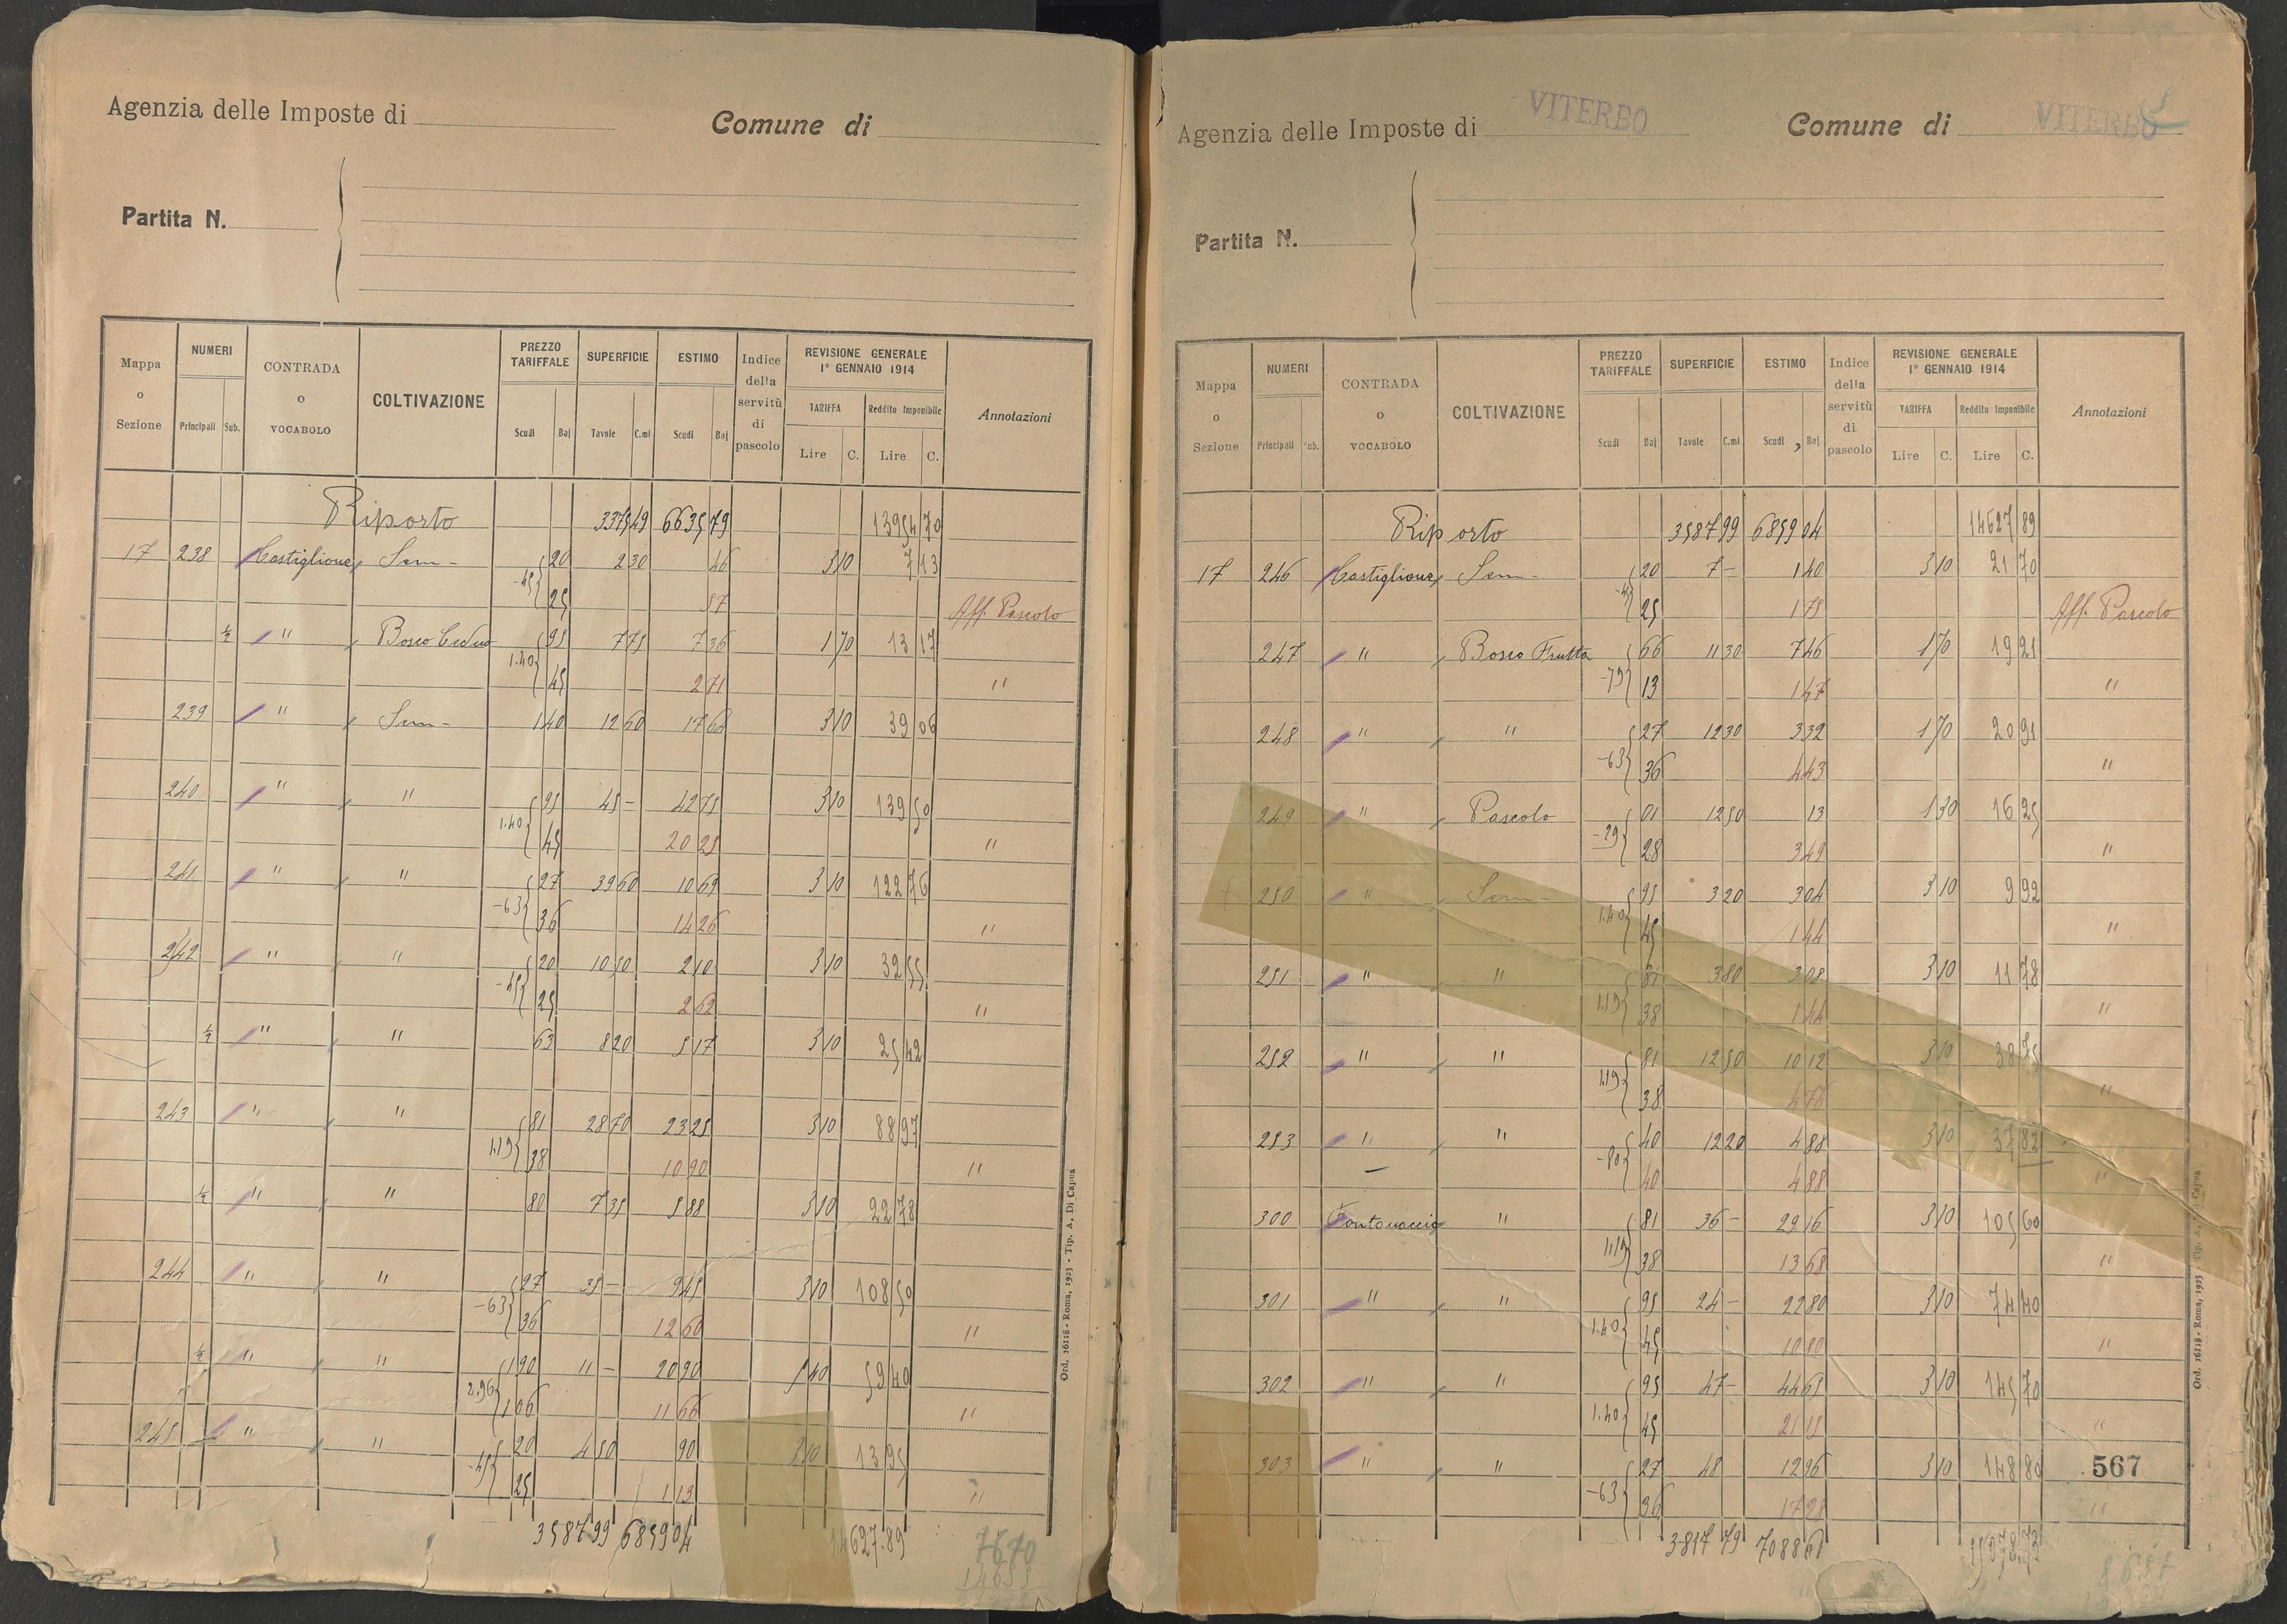 Agenzia delle Imposte di
Comune di
Partita N.
Mappa o Sezione | NUMERI Principali Sub. | CONTRADA o VOCABOLO | COLTIVAZIONE | PREZZO TARIFFALE Scudi Baj | SUPERFICIE Tavole C.mi | ESTIMO Scudi Baj | Indice della servitù di pascolo | REVISIONE GENERALE 1º GENNAIO 1914 TARIFFA Lire C. Reddito Imponibile Lire C. | Annotazioni
Riporto 3379 49 6635 79 13954 70
17 238 Castiglione Sem- 20 2 30 46 3 10 7 13
-45 25 57 Aff. Pascolo
½ " Bosco Ceduo 95 7 75 7 36 1 70 13 17
1.40 45 2 71 "
239 " Sem- 1 40 12 60 17 64 3 10 39 06
240 " " 95 45 - 42 75 3 10 139 50
1.40 45 20 25 "
241 " " 27 39 60 10 69 3 10 122 76
-63 36 14 26 "
242 " " 20 10 50 2 10 3 10 32 55
-45 25 2 62 "
½ " " 63 8 20 5 17 3 10 25 42
243 " " 81 28 70 23 25 3 10 88 97
1.19 38 10 90 "
½ " " 80 7 35 5 88 3 10 22 78
244 " " 27 35 - 9 45 3 10 108 50
-63 36 12 60 "
½ " " 1 90 11 - 20 90 5 40 59 40
2.96 1 06 11 66 "
245 " " 20 4 50 90 3 10 13 95
-45 25 1 13 "
3587 99 6859 04 14627.89
7670
Ord. 16118 - Roma, 1923 - Tip. A. Di Capua
Agenzia delle Imposte di VITERBO
Comune di VITERBO
Partita N.
Mappa o Sezione | NUMERI Principali Sub. | CONTRADA o VOCABOLO | COLTIVAZIONE | PREZZO TARIFFALE Scudi Baj | SUPERFICIE Tavole C.mi | ESTIMO Scudi Baj | Indice della servitù di pascolo | REVISIONE GENERALE 1º GENNAIO 1914 TARIFFA Lire C. Reddito Imponibile Lire C. | Annotazioni
Riporto 3587 99 6859 04 14627 89
17 246 Castiglione Sem- 20 7 - 1 40 3 10 21 70
-45 25 1 75 Aff. Pascolo
247 " Bosco Frutta 66 11 30 7 46 1 70 19 21
-79 13 1 47 "
248 " " 27 12 30 3 32 1 70 20 91
-63 36 4 43 "
249 " Pascolo 01 12 50 13 1 30 16 25
-29 28 3 49 "
250 " Sem- 95 3 20 3 04 3 10 9 92
1.40 45 1 44 "
251 " " 81 3 80 3 08 3 10 11 78
1.19 38 1 44 "
252 " " 81 12 50 10 12 3 10 38 75
1.19 38 4 76 "
253 " " 40 12 20 4 88 3 10 37 82
-80 40 4 88 "
300 Fontanaccio " 81 36 - 29 16 3 10 105 60
1.19 38 13 68 "
301 " " 95 24 - 22 80 3 10 74 40
1.40 45 10 80 "
302 " " 95 47 - 44 65 3 10 145 70
1.40 45 21 15 "
303 " " 27 48 12 96 3 10 148 80 567
-63 36 17 28 "
3817 79 7088 61
Ord. 16118 - Roma, 1923 - Tip. A. Di Capua